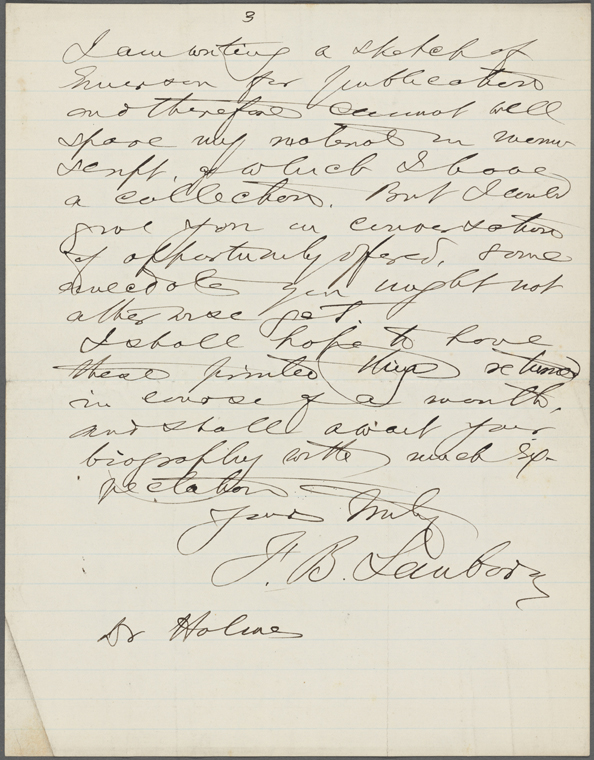 3
I am writing a sketch of
Emerson for publication
and therefore cannot well
spare my material in manu
script, of which I have
a collection. But I could
give you in conversation
if opportunity offered, some
anecdotes you might not
otherwise get.
I shall hope to have
these printed things returned
in course of a month,
and shall await your
biography with much ex-
pectation
Yours truly
F. B. Sanborn
Dr Holmes